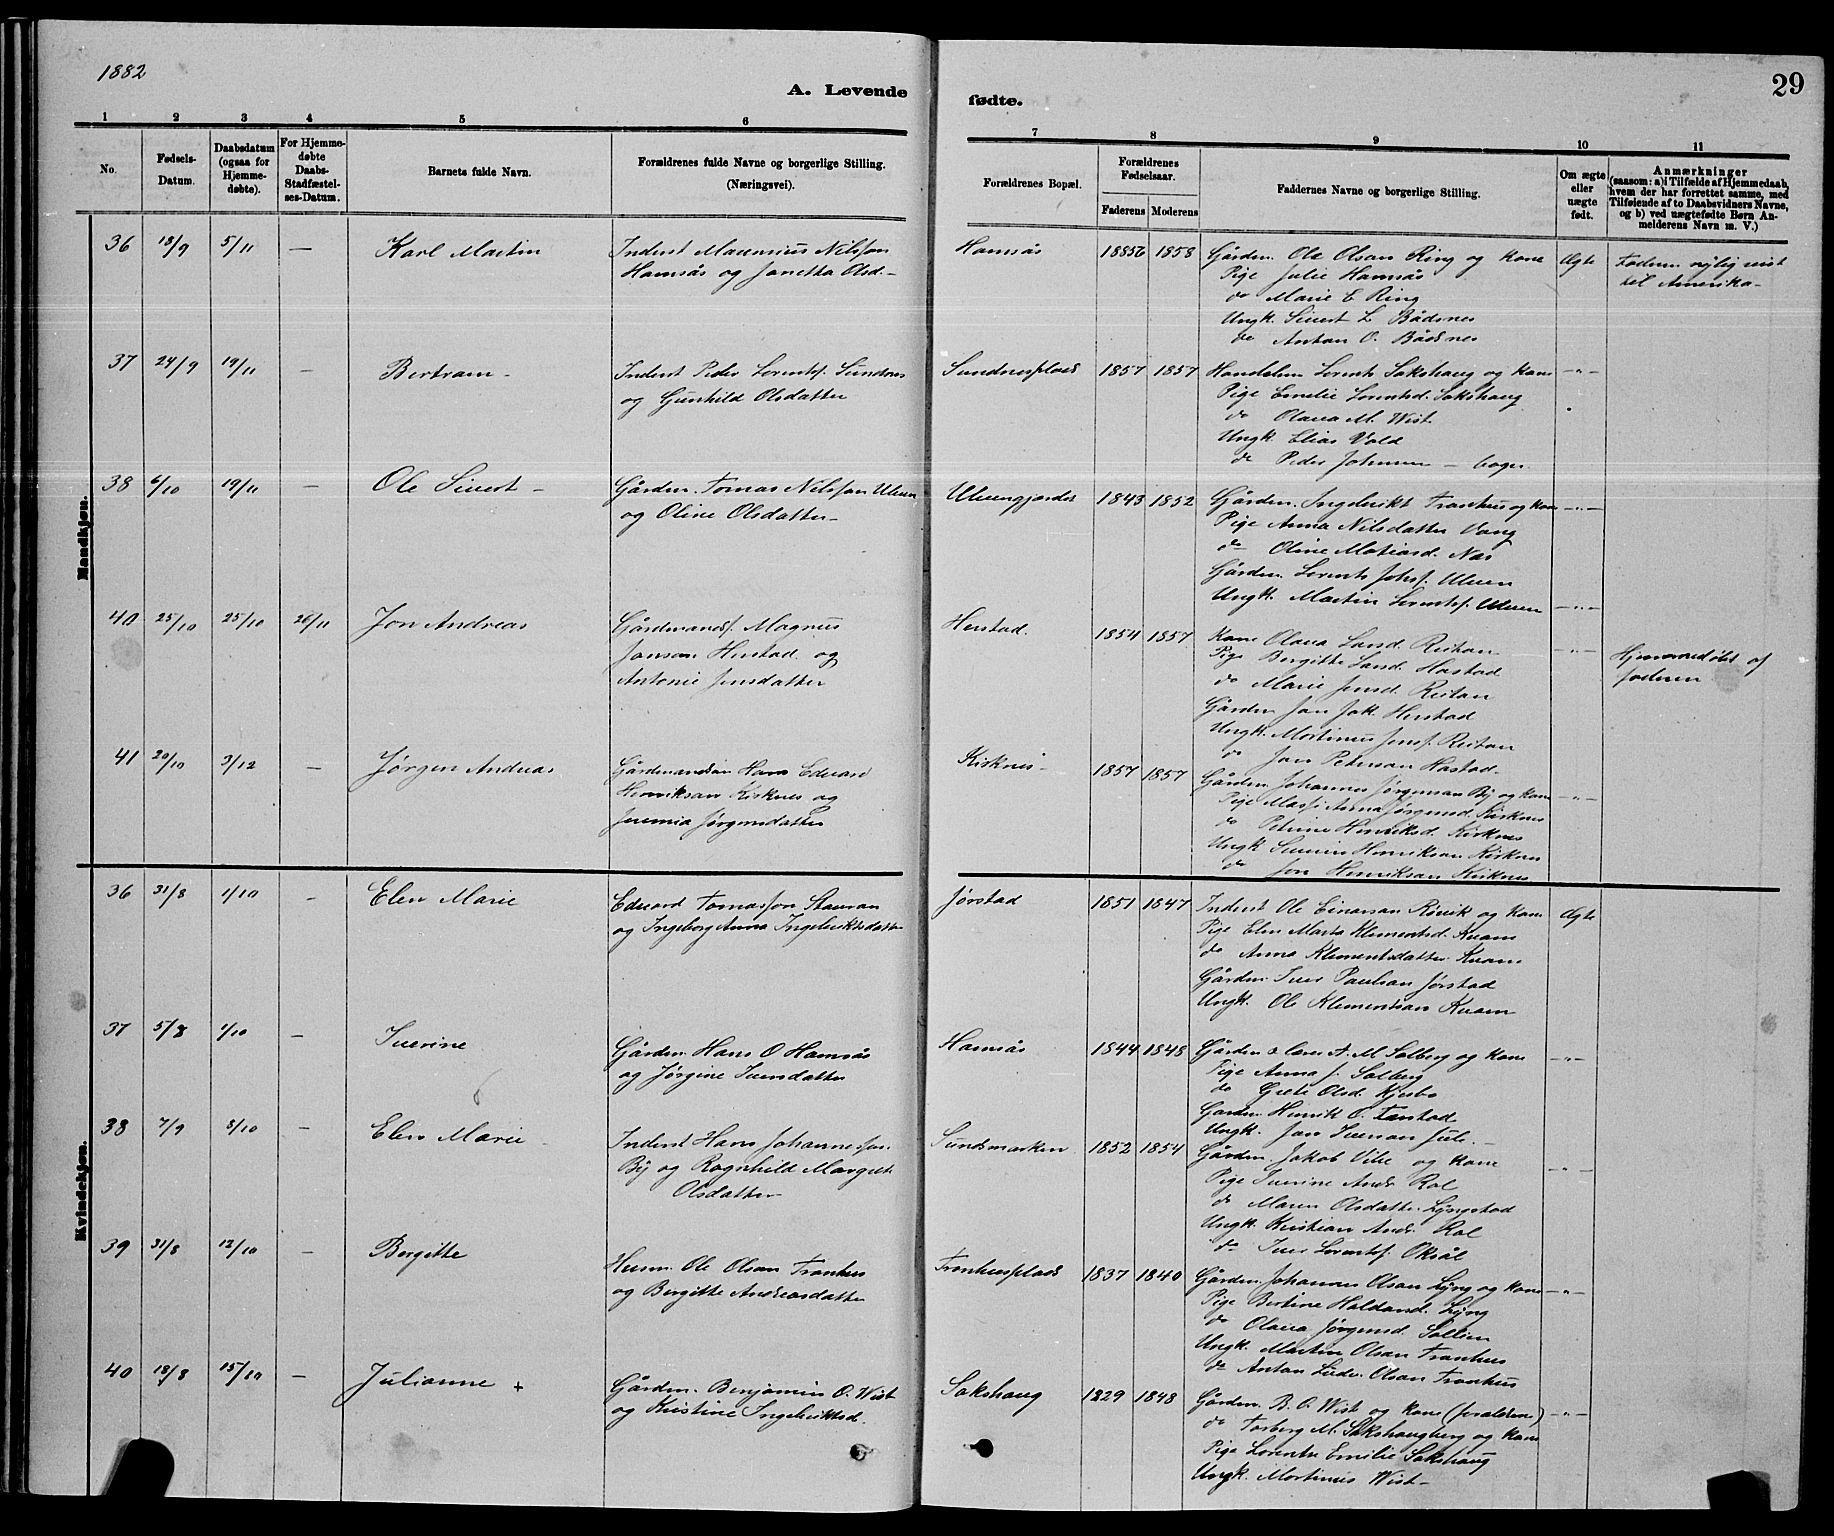 1882
A. Levende fødte.
29
1 2 3 4 5 6 7 8 9 10 11
No.
Fødsels-Datum.
Daabsdatum (ogsaa for Hjemme-døbte).
For Hjemme-døbte Daabs-Stadfæstel-ses-Datum.
Barnets fulde Navn.
Forældrenes fulde Navne og borgerlige Stilling. (Næringsvei).
Forældrenes Bopæl.
Forældrenes Fødselsaar.
Faderens Moderens
Faddernes Navne og borgerlige Stilling.
Om ægte eller uægte født.
Anmærkninger (saasom: a) i Tilfælde af Hjemmedaab, hvem der har forrettet samme, med Tilføiende af to Daabsvidners Navne, og b) ved uægtefødte Børn An-melderens Navn m. V.)
Mandkjøn.
36 18/9 5/11 — Karl Martin
Inderst Maurisius Nilsson
Hamsås og Janetta Olsd-
Hamsås 1856 1858
Gårdm. Ole Olsan Ring og Kone
Pige Julie Hamsås
do Marie E Ring
Ungk. Sivert L Bådsnes
do Antan O. Bådsnes
Ægte
Faderen nylig reist
til Amerika-
37 24/9 19/11 — Bertram-
Inderst Peder Lorentsf. Sundnes
og Gunhild Olsdatter
Sundnesplads 1857 1857
Handelsm Lorents Sakshaug og Kone
Pige Emelie Lorentsd. Sakshaug
do Olava M. Wist
Ungk. Elias Vold
do Peder Johansen — bager
—"—
38 6/10 19/11 — Ole Sivert —
Gårdm. Tomas Nilsson Ulven
og Oline Olsdatter-
Ulvengjerdet 1843 1852
Gårdm. Ingebrikt Tranhus og Kone
Pige Anna Nilsdatter Vang
do Oline Matiasd. Nas
Gårdm. Lorents Johsf. Ulven
Ungk. Martin Lorentsf. Ulven
—"—
40 25/10 25/10 26/11 Jon Andreas
Gårdmandsf. Magnus
Jansan Herstad og
Antonie Jensdatter
Herstad. 1854 1857
Kone Olava Larsd. Reitan
Pige Bergitte Larsd. Hastad
do Marie Jensd. Reitan
Gårdm Jan Jak. Herstad
Ungk. Mortinus Jensf. Reitan
do Jan Petersan Hastad-
—"—
Hjemmedöbt af
faderen
41 20/10 3/12 — Jørgen Andreas
Gårdmandsön Hans Edvard
Henriksan Kirknes og
Jeremia Jørgensdatter
Kirknes- 1857 1857
Gårdm. Johannes Jørgensan By og Kone
Pige Massi Anna Jørgensd. Kirknes
do Petrine Henriksd. Kirknes
Ungk Henriksan Kirknes
do Jon Henriksan Kirknes
—"—
Kvindekjøn.
36 31/8 1/10 - Elen Marie
Edvard Tomasson Stavran
og Ingeborg Anna Ingebriktsdatter
Jørstad 1851 1847
Inderst Ole Einarsan Røvik og Kone
Pige Elen Marta Klementsd. Kvam
do Anna Klementsdatter Kvam
Gårdm. Iver Paulsan Jørstad
Ungk. Ole Klementsan Kvam
Ægte
37 5/8 1/10 — Iverine
Gårdm. Hans O Hamsås
og Jørgine Iversdatter
Hamsås 1844 1848
Gårdm & lærer A. M Salberg og Kone
Pige Anna J. Salberg
do Grete Olsd. Kjesbo
Gårdm. Henrik O. Tarstad
Ungk. Jan Iversan Jule.
—"—
38 7/9 8/10 — Elen Marie
Inderst Hans Johannessan
By og Ragnhild Margret
Olsdatter
Sundsmarken 1852 1854
Gårdm. Jakob Vibe og Kone
Pige Iverine Andr. Rol
do Maren Olsdatter Lyngstad
Ungk. Kristian Andr. Rol
do Iver Lorentsf. Oksål
—"—
39 31/8 12/10 — Bergitte
Husm. Ole Olsan Tranhus
og Bergitte Andreasdatter
Tranhusplads 1837 1840
Gårdm. Johannes Olsan Lyng og Kone
Pige Bertine Haldansd. Lyng
do Olava Jørgensd. Sallin
Ungk. Martin Olsan Tranhus
do Antan Olsan Tranhus
—"—
40 18/8 15/10 — Julianne +
Gårdm. Benjamin O. Wist
og Kristine Ingebriktsd.
Sakshaug 1829 1848
Gårdm. B. O. Wist og Kone (foraldrene)
do Torberg M. Sakshaugberg og Kone
Pige Lorentse Emilie Sakshaug
Ungk. Mortinus Wist-
—"—